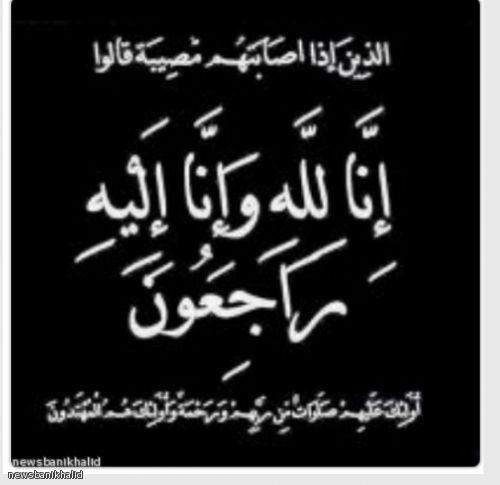 الذين إذا اصابتهم مصيبة قالوا
إنَّا للَّه وَإنَّا إلَيْهِ
رَاجِعُونَ
أُولَئِكَ عَلَيْهِمْ صَلَوَاتٌ مِّن رَّبِّهِمْ وَرَحْمَةٌ وَأُولَئِكَ هُمُ الْمُهْتَدُونَ
newsbanikhalid
newsbanikhalid